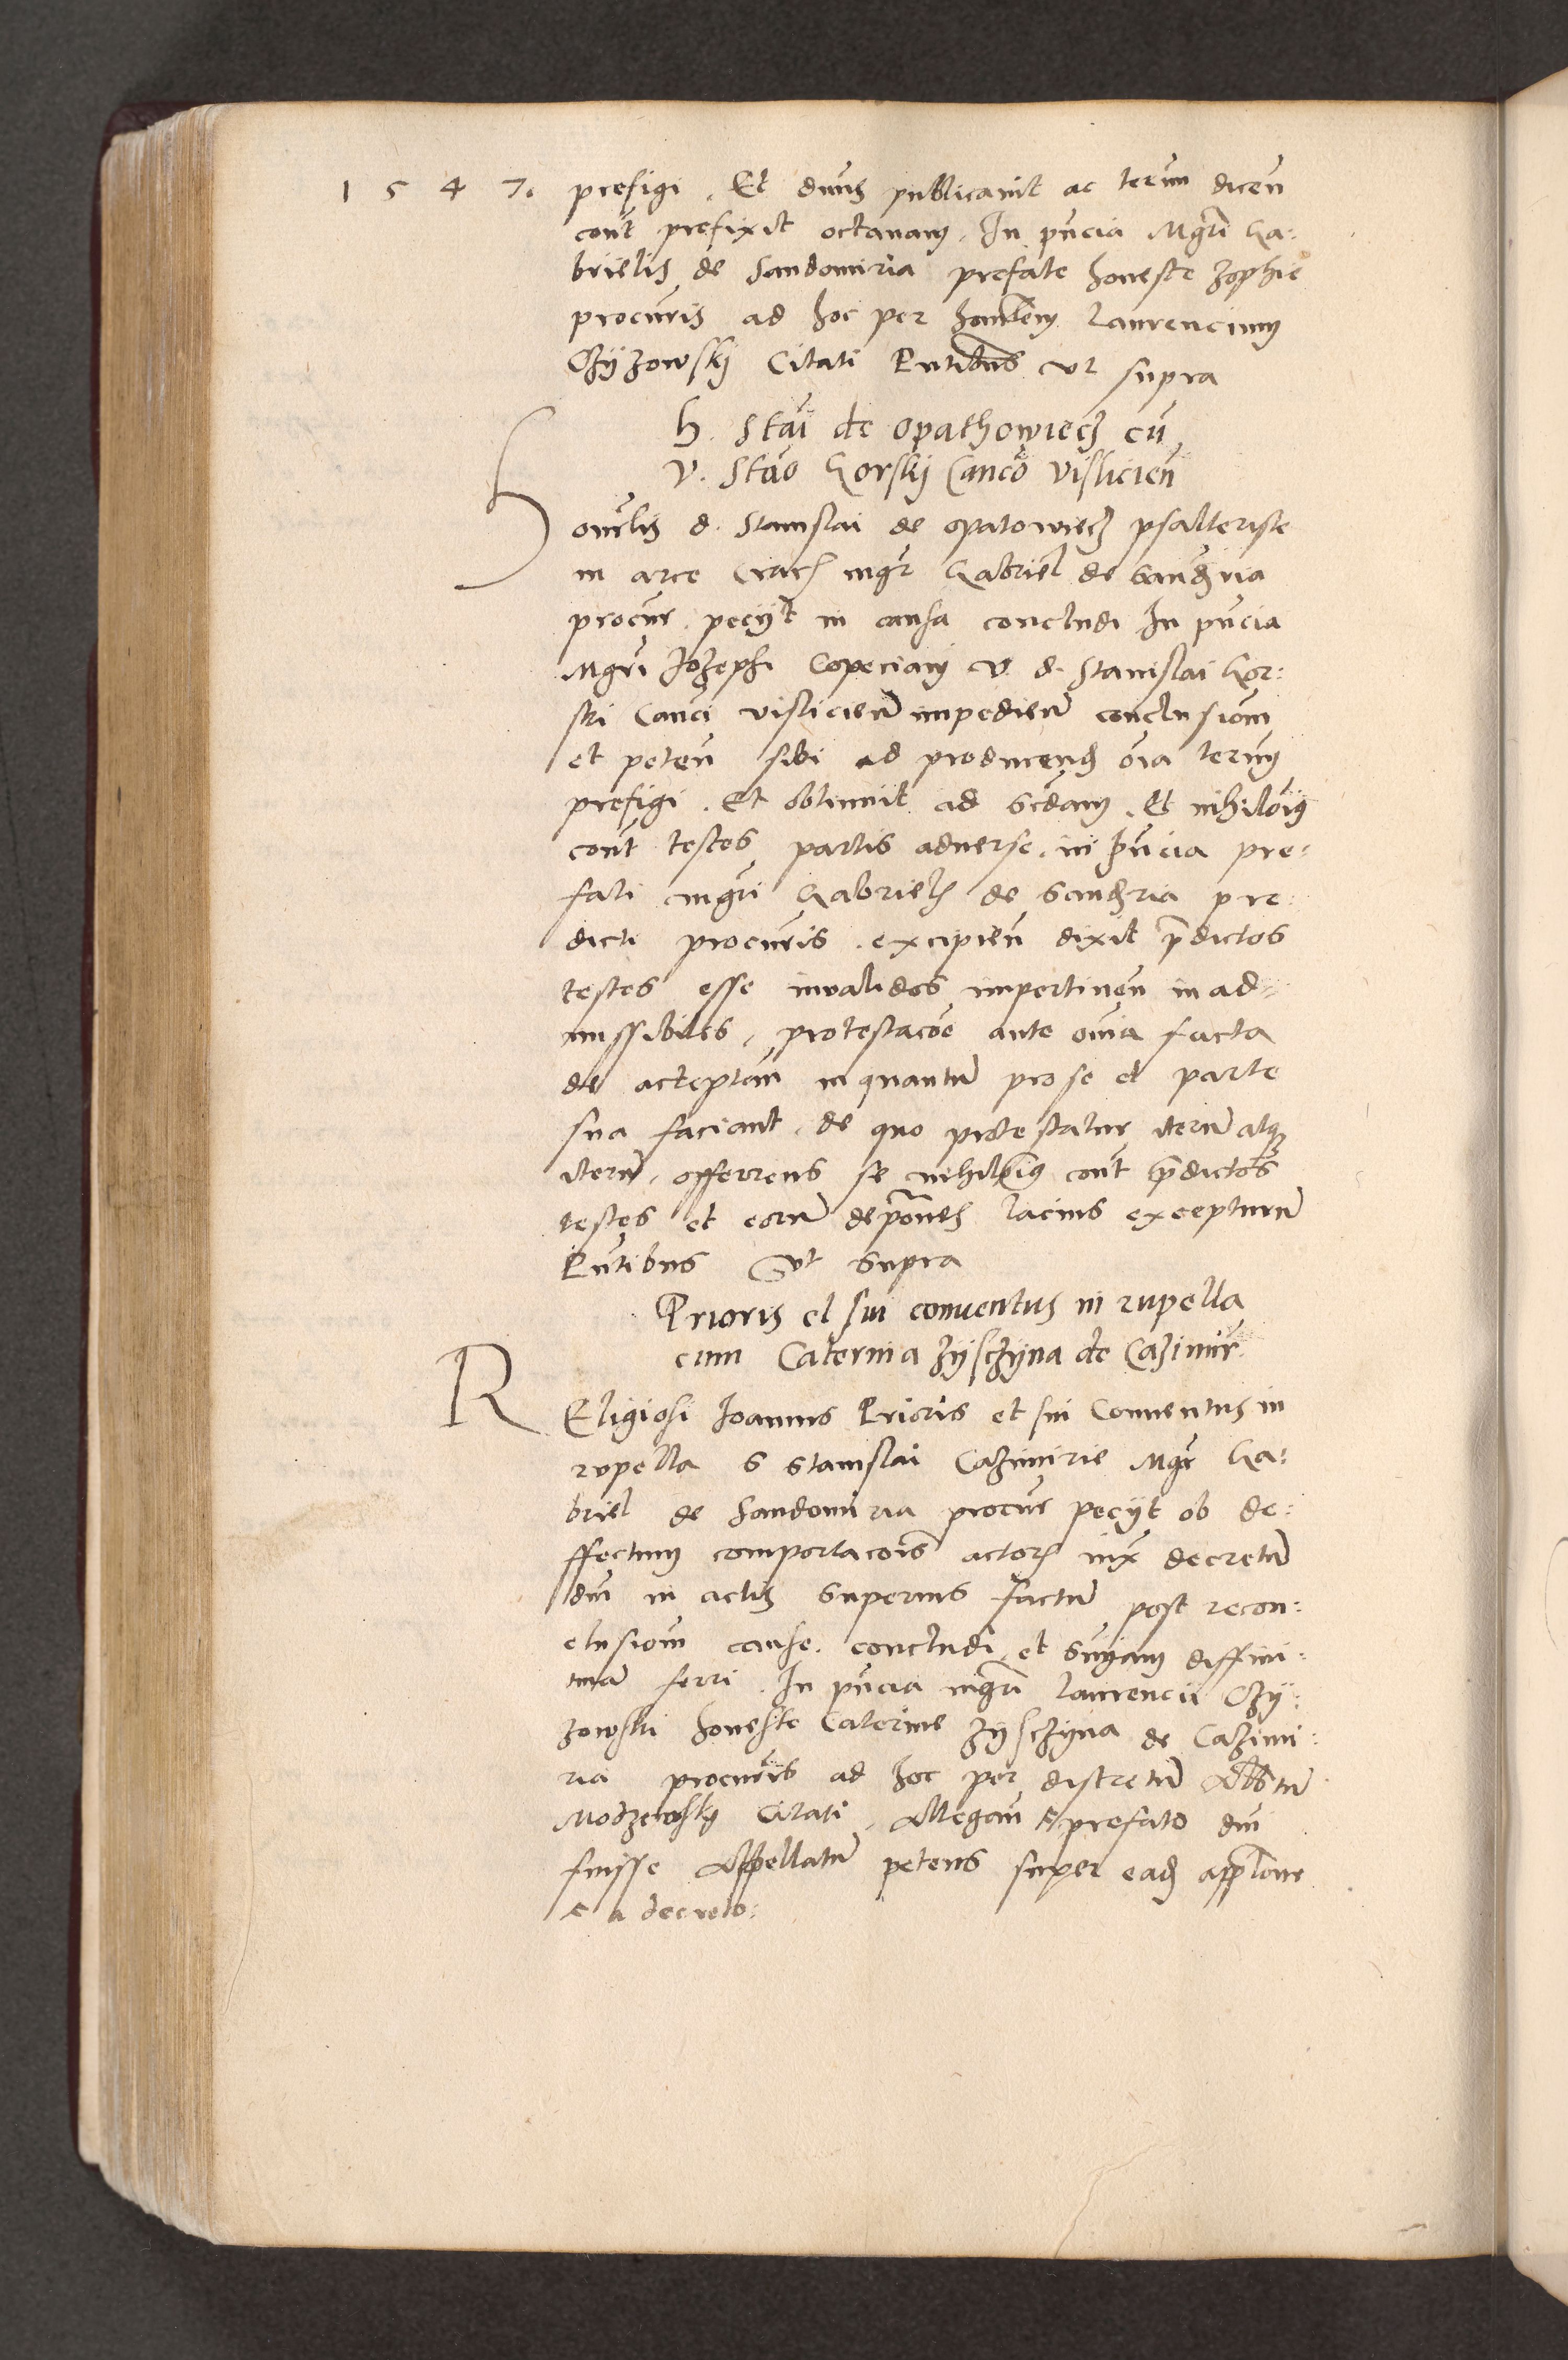 1 5 4 7. prefigi. Et dnus publicavit ac termi dicen
cont prefixit octavam. In pncia Mgri Ga:
brielis de Sandomiria prefate honeste Zophie
procuris ad hoc per honblem Laurencium
Czyzowsky Citati Pntibus ut supra
H. Stai de Opathowiecz cu
V. Stao Gorskj Canco vislicien
Honrlis d. Stanislai de opatowiecz psalteriste
in arce Crac mgr Gabriel de Sandria
procur. peciit in causa concludi In pncia
Mgri Jozephi Copeciani V. d. Stanislai Gor:
ski Canci vislicien impedien conclusionem
et peten sibi ad producend oia termi
prefigi. Et obtinuit ad scdam. Et nihilois
cont testes partis adverse. in pncia pre:
fati mgri Gabrielis de Sandria pre:
dicti procuris. excipien dixit predictos
testes esse invalidos impertinen in ad:
missibiles, protestacoe ante omia facta
de acceptan in quantum pro se et parte
sua faciant, de quo protestatur iterum atque
iterum, offerrens se nihilois cont predictos
testes et eorum depones lacius excepturum
Pntibus Ut supra
Prioris et sui conventus in rupella
cum Caterina Zyschzyna de Cazimir
REligiosi Joannis Prioris et sui Conventus in
rupella S Stanislai Cazimirie Mgr Ga:
briel de Sandomiria procur peciit ob de:
ffectum comportacois actor iux decretum
dni in actis superius factum post recon:
clusionem cause. concludi et snniam diffini:
tivam ferri. In pncia mgri Laurencii Czy:
zowski honeste Caterine Zyschzyna de Cazimi:
ria procuris ad hoc per discretum Albtum
Modzewsky Citati, Allegan prefato dni
fuisse Appellatum petens super eadem applone
a decreto: